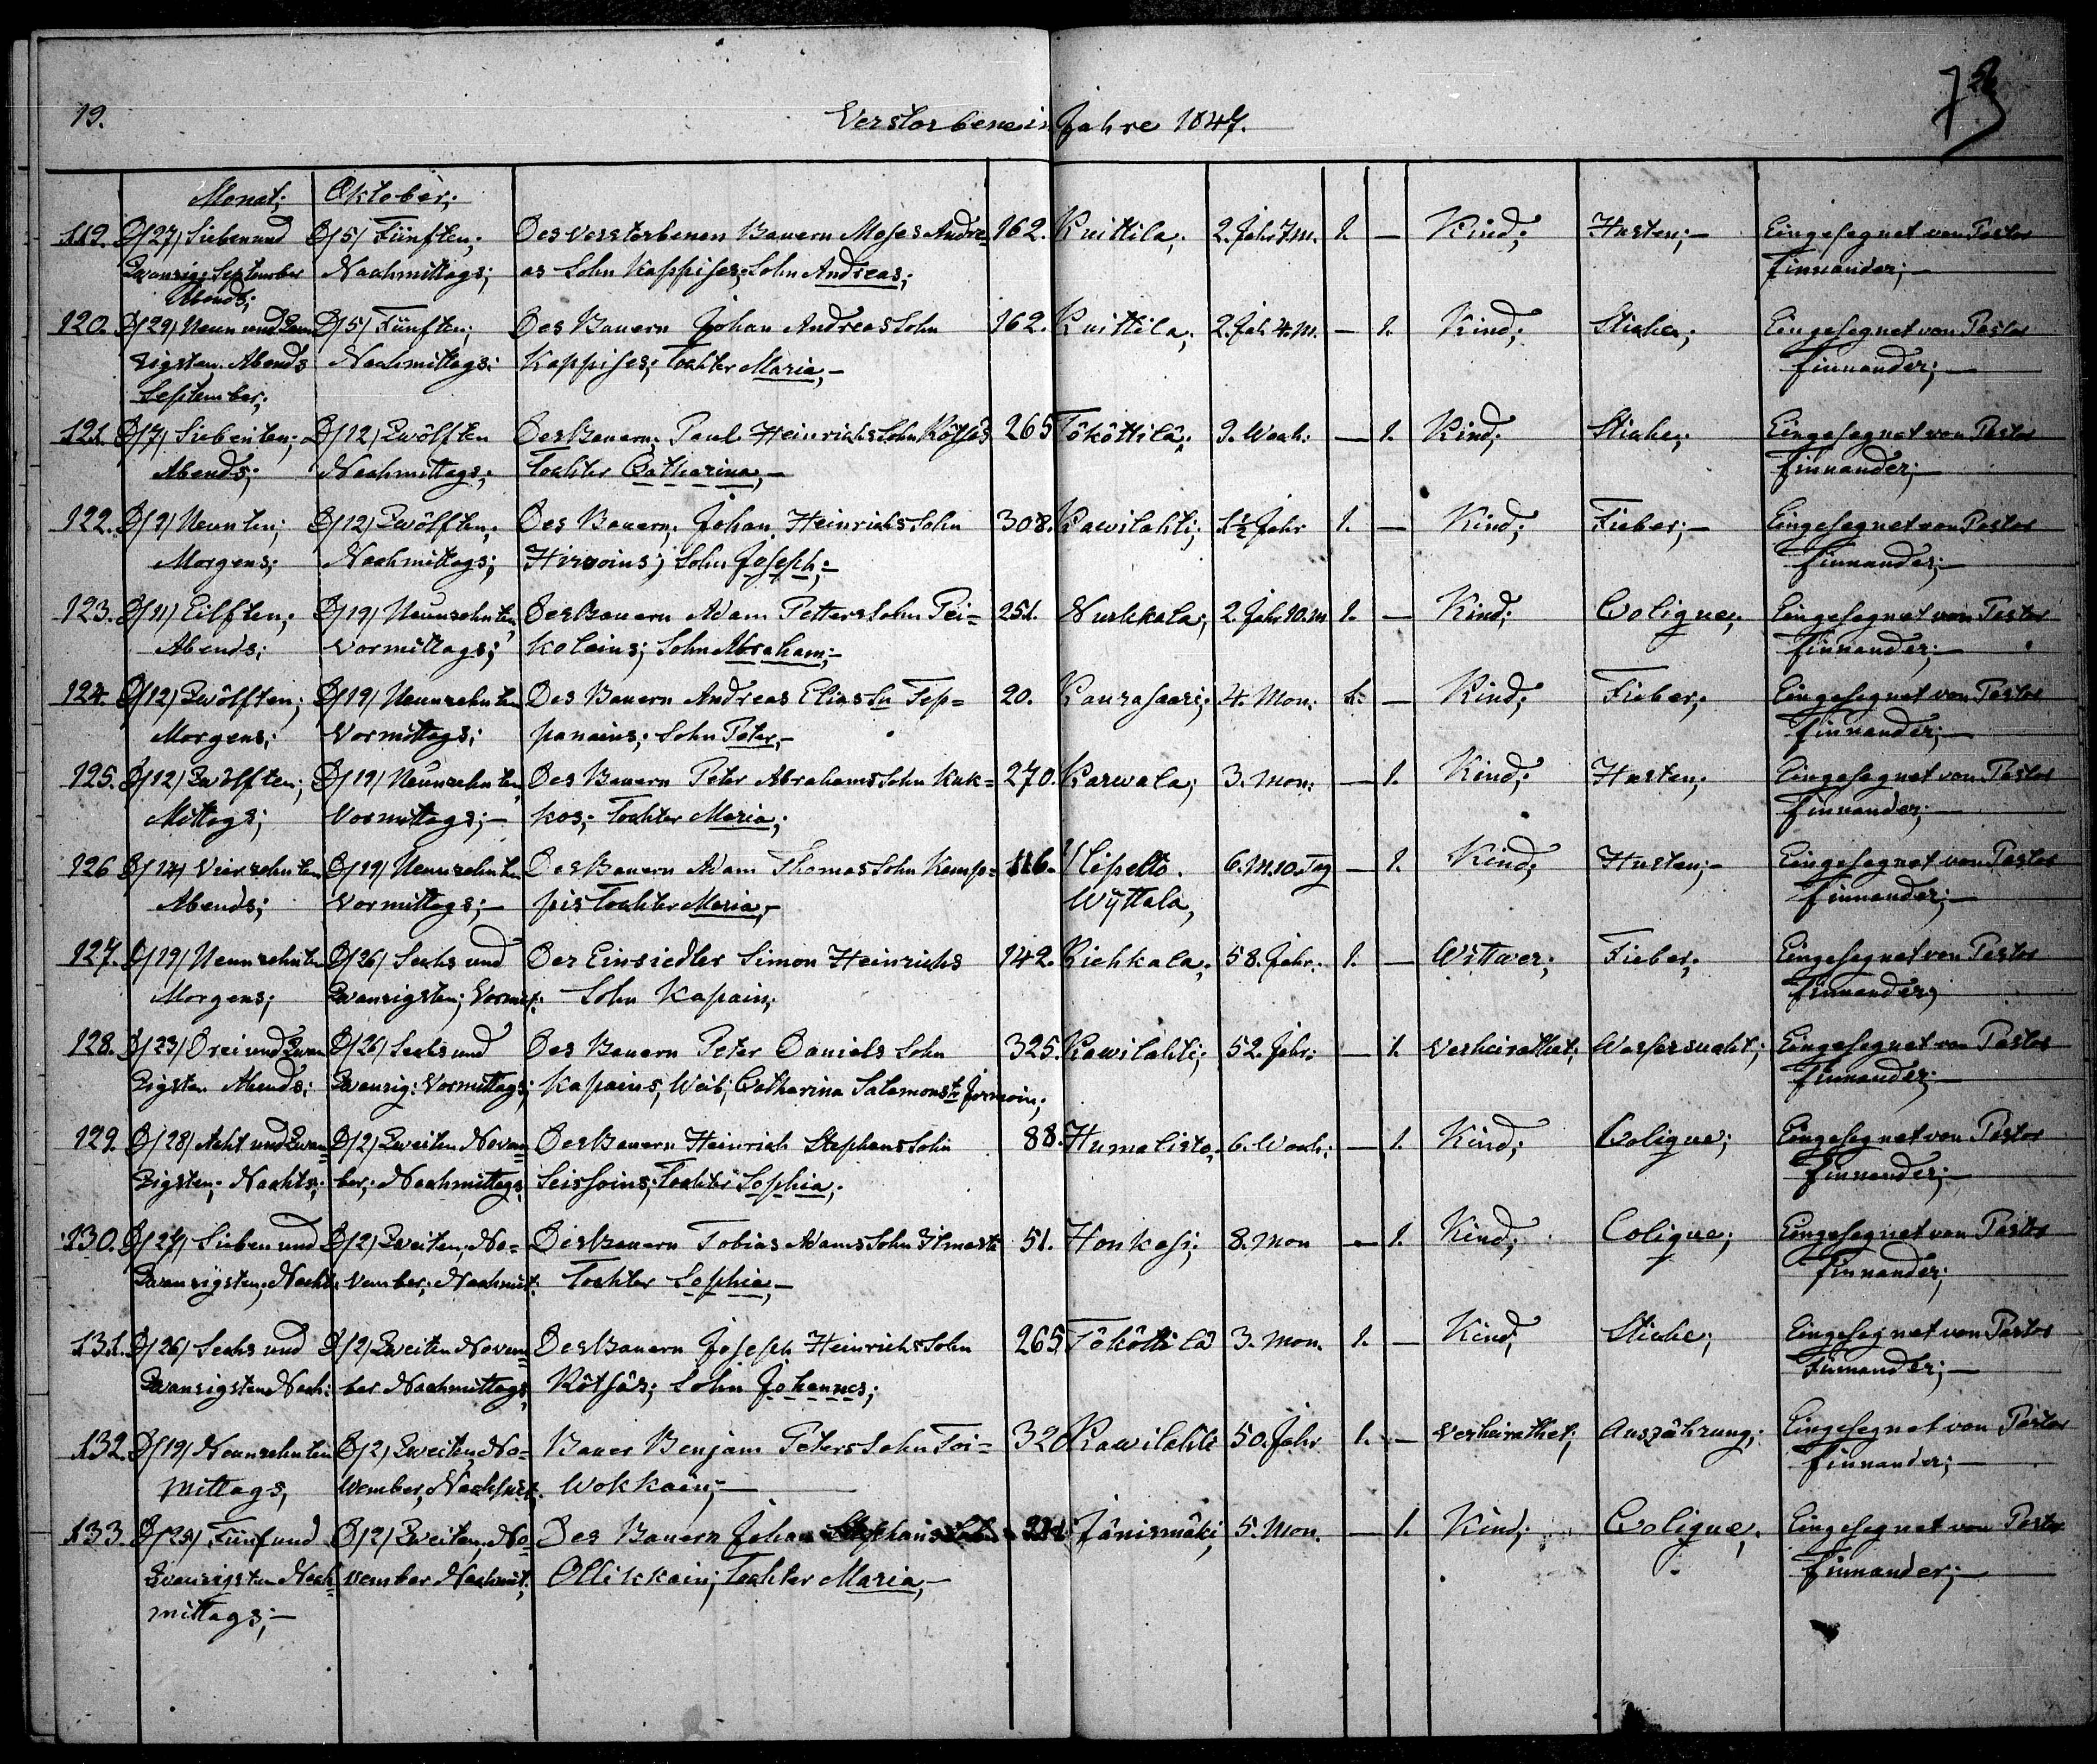 19. Verstorbene im Jahre 1847. 73
Monat; Oktober;
119. D/27/ Sieben und D/5/ Fünften; Des verstorbenen Bauern Moses Andre- 162. Knittila; 2. Jahr 7 M. 1. — Kind; Husten;— Eingesegnet von Pastor
Zwanzig: September Nachmittags; as Sohn Kappises, Sohn Andreas; Finnander;—
Abends;
120. D/29/ Neun und Zwan D/5/ Fünften; Des Bauern Johan Andreas Sohn 162. Knittila; 2. Jah 4. M. — 1. Kind; Stiche; Eingesegnet von Pastor
zigsten Abends Nachmittags; Kappises; Tochter Maria,— Finnander;—
September;
121. D/7/ Siebenten; D/12/ Zwölften Des Bauern, Paul Heinrichs Sohn Rötsäs 265 Tököttilä; 9. Woch: — 1. Kind; Stiche; Eingesegnet von Pastor
Abends; Nachmittags; Tochter Catharina,— Finnander;—
122. D/9/ Neunten; D/12/ Zwölften; Des Bauern; Johan Heinrichs Sohn 308. Kawilahti; 1½ Jahr 1. — Kind; Fieber;— Eingesegnet von Pastor
Morgens; Nachmittags; Hirwoins; Sohn Joseph;— Finnander;—
123. D/11/ Eilften; D/19/ Neunzehnten, Des Bauern Adam Petters Sohn Pei- 251. Nurkkala; 2. Jahr 10. M 1. — Kind; Colique; Eingesegnet von Pastor
Abends; Vormittags; kolains; Sohn Abraham;— Finnander;—
124. D/12/ Zwölften; D/19/ Neunzehnten Des Bauern Andreas Elias Sn Tep- 20. Kaurasaari; 4. Mon: 1. — Kind; Fieber; Eingesegnet von Pastor
Morgens; Vormittags; panains; Sohn Peter,— Finnander;—
125. D/12/ Zwölften; D/19/ Neunzehnten, Des Bauern Peter Abrahams Sohn Kuk- 270. Karwala; 3. Mon: — 1. Kind; Husten; Eingesegnet von Pastor
Mittags; Vormittags;— kos; Tochter Maria; Finnander;—
126 D/14/ Vierzehnten D/19/ Neunzehnten Des Bauern Adam Thomas Sohn Kemp- 116. Ylepelto. 6. M. 10. Tag — 1. Kind; Husten;— Eingesegnet von Pastor
Abends; Vormittags;— pis Tochter Maria,— Wÿttala, Finnander;—
127. D/19/ Neunzehnten D/26/ Sechs und Der Einsiedler Simon Heinrichs 142. Riehkala; 58. Jahr. 1. — Wittwer; Fieber; Eingesegnet von Pastor
Morgens; Zwanzigsten; Vormit: Sohn Kapain; Finnander;
128. D/23/ Drei und Zwan D/26/ Sechs und Des Bauern Peter Daniels Sohn 325. Kawilahti; 52. Jahr: — 1. Verheirathet; Wassersucht; Eingesegnet von Pastor
zigsten Abends: Zwanzig: Vormittags; Kapains, Weib, Catharina Salamons tr Jormoin; Finnander;—
129. D/28/ Acht und Zwan- D/2/ Zweiten Novem- Des Bauern Heinrich Stephans Sohn 88. Humalisto; 6. Woch: — 1. Kind; Colique; Eingesegnet von Pastor
zigsten; Nachts; ber; Nachmittags, Seissoins; Tochter Sophia; Finnander;—
130. D/27/ Sieben und D/2/ Zweiten, No- Des Bauern Tobias Adams Sohn Ilmasti 51. Honkasi; 8. Mon — 1. Kind; Colique; Eingesegnet von Pastor
Zwanzigsten; Nacht: vember; Nachmit: Tochter Sophia,— Finnander;
131. D/26/ Sechs und D/2/ Zweiten Novem- Des Bauern Joseph Heinrichs Sohn 265 Tököttilä 3. Mon. 1. — Kind; Stiche; Eingesegnet von Pastor
Zwanzigsten Nach: ber Nachmittags, Rötsäs; Sohn Johannes; Finnander;—
132. D/19/ Neunzehnten D/2/ Zweiten, No- Bauer Benjam Peters Sohn Toi- 320 Kawilahti 50. Jahr 1. — Verheirathet; Auszährung; Eingesegnet von Pastor
Mittags, Wokkain;— Finnander;—
133. D/25/ Fünf und D/2/ Zweiten, No- Des Bauern Johan Stephans Jänismäki; 5. Mon. — 1. Kind; Colique; Eingesegnet von Pastor
Zwanzigsten Nach- vember Nachmit; Ollikkain; Tochter Maria,— Finnander;—
mittags;—